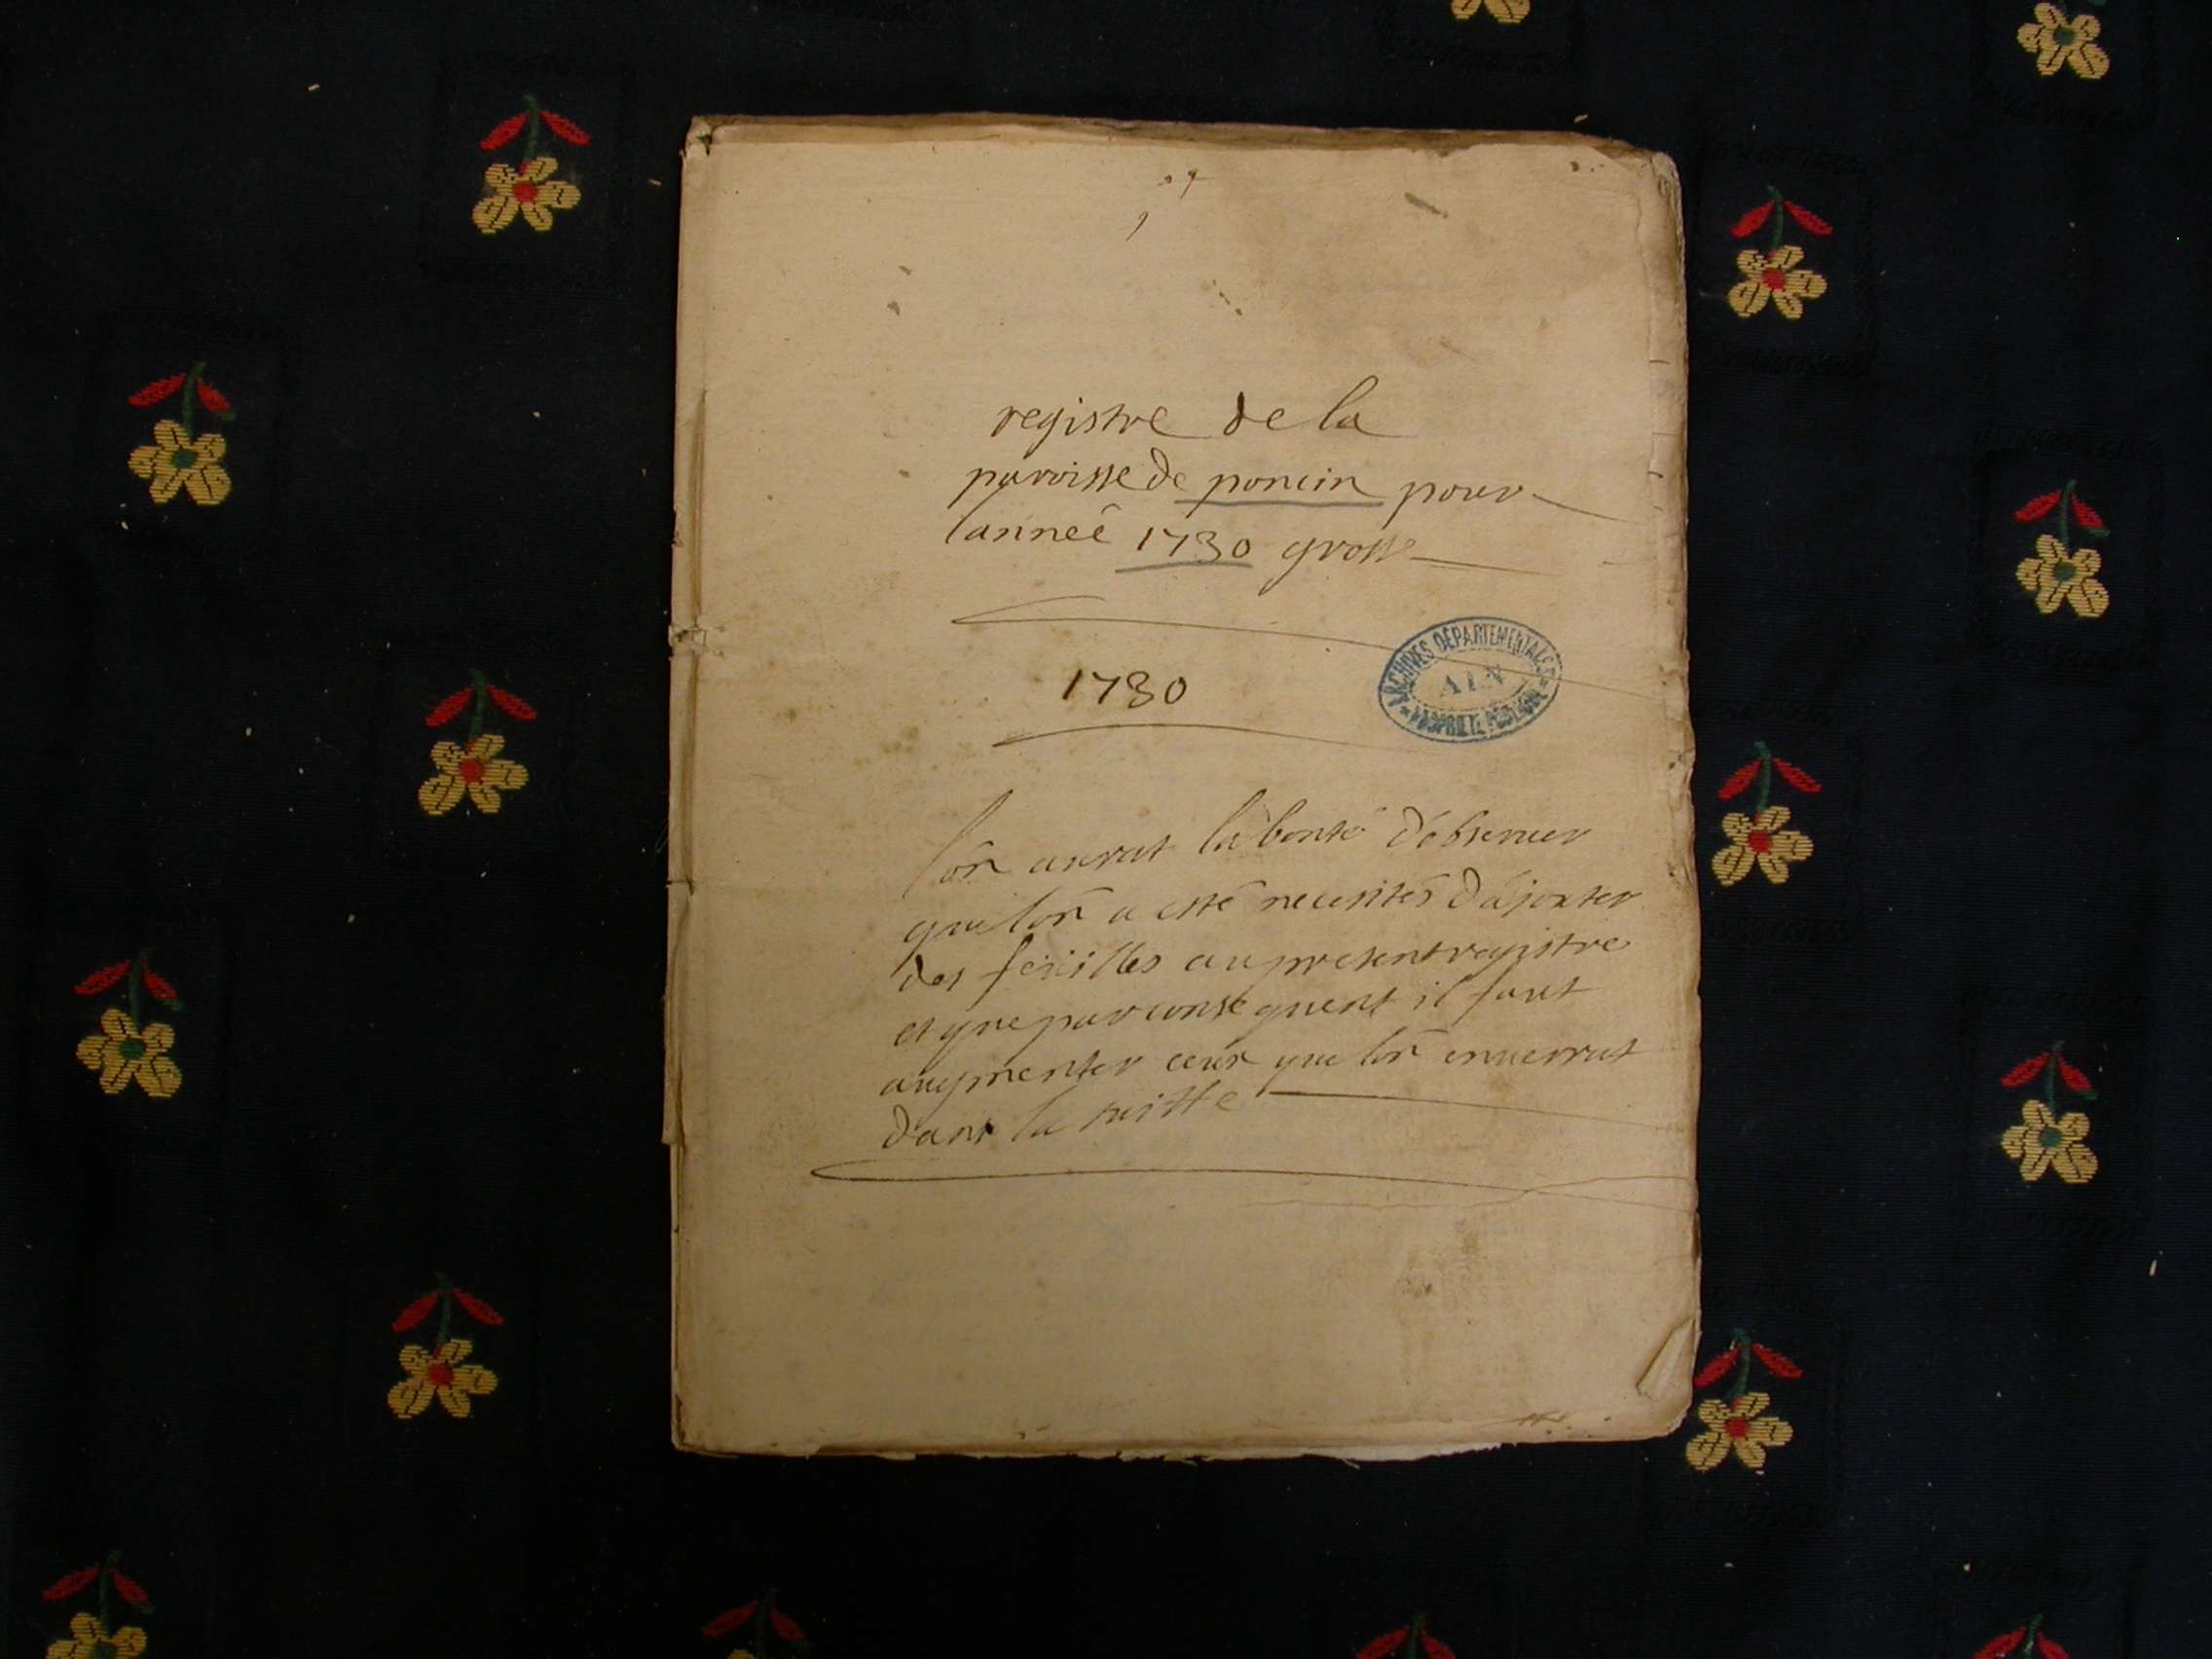 registre de la
paroisse de poncin pour
lanneé 1730 grosse
1730
ARCHIVES DÉPARTEMENTALES
AIN
PROPRIÉTÉ PUBLIQUE
lon aurat la bonté dobseruer
que lon a esté necesités dajouter
des feüilles au present registre
et que par consequent il faut
augmenter ceux que lon enuerrat
dans la suitte